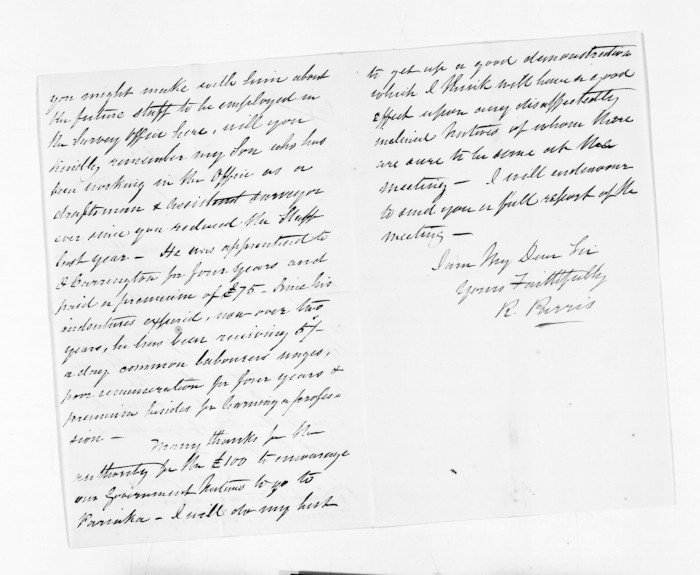 you might make with him about
the future staff to be employed in
the Survey Office here, will you
kindly remember my Son who has
been working in the Office as a
draftsman & assistant surveyor
ever since you reduced the Staff
last year — He was apprenticed to
O Carrington for four years and
paid a premium of £75 — Since his
indentures expired, now over two
years, he has been receiving 5/-
a day common labourers wages,
poor remuneration for four years &
premium besides for learning a profes-
sion —
Many thanks for the
authority for the £100 to encourage
our Government Natives to go to
— I will do my best
to get up a good demonstration
which I think will have a good
effect upon any disaffectedly
inclined Natives of whom there
are sure to be some at the
meeting — I will endeavour
to send you a full report of the
meeting —
I am My Dear Sir
Yours Faithfully
R. Parris